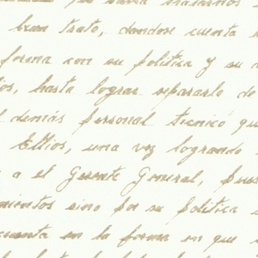 buen trato, dandose cuenta
forma con su politica y su
ios, hasta lograr separarlo de
demás personal tecnicó que
Ellios, una vez logrando
a el Gerente General, pues
mientos sino por su politica
cuenta en la forma en que